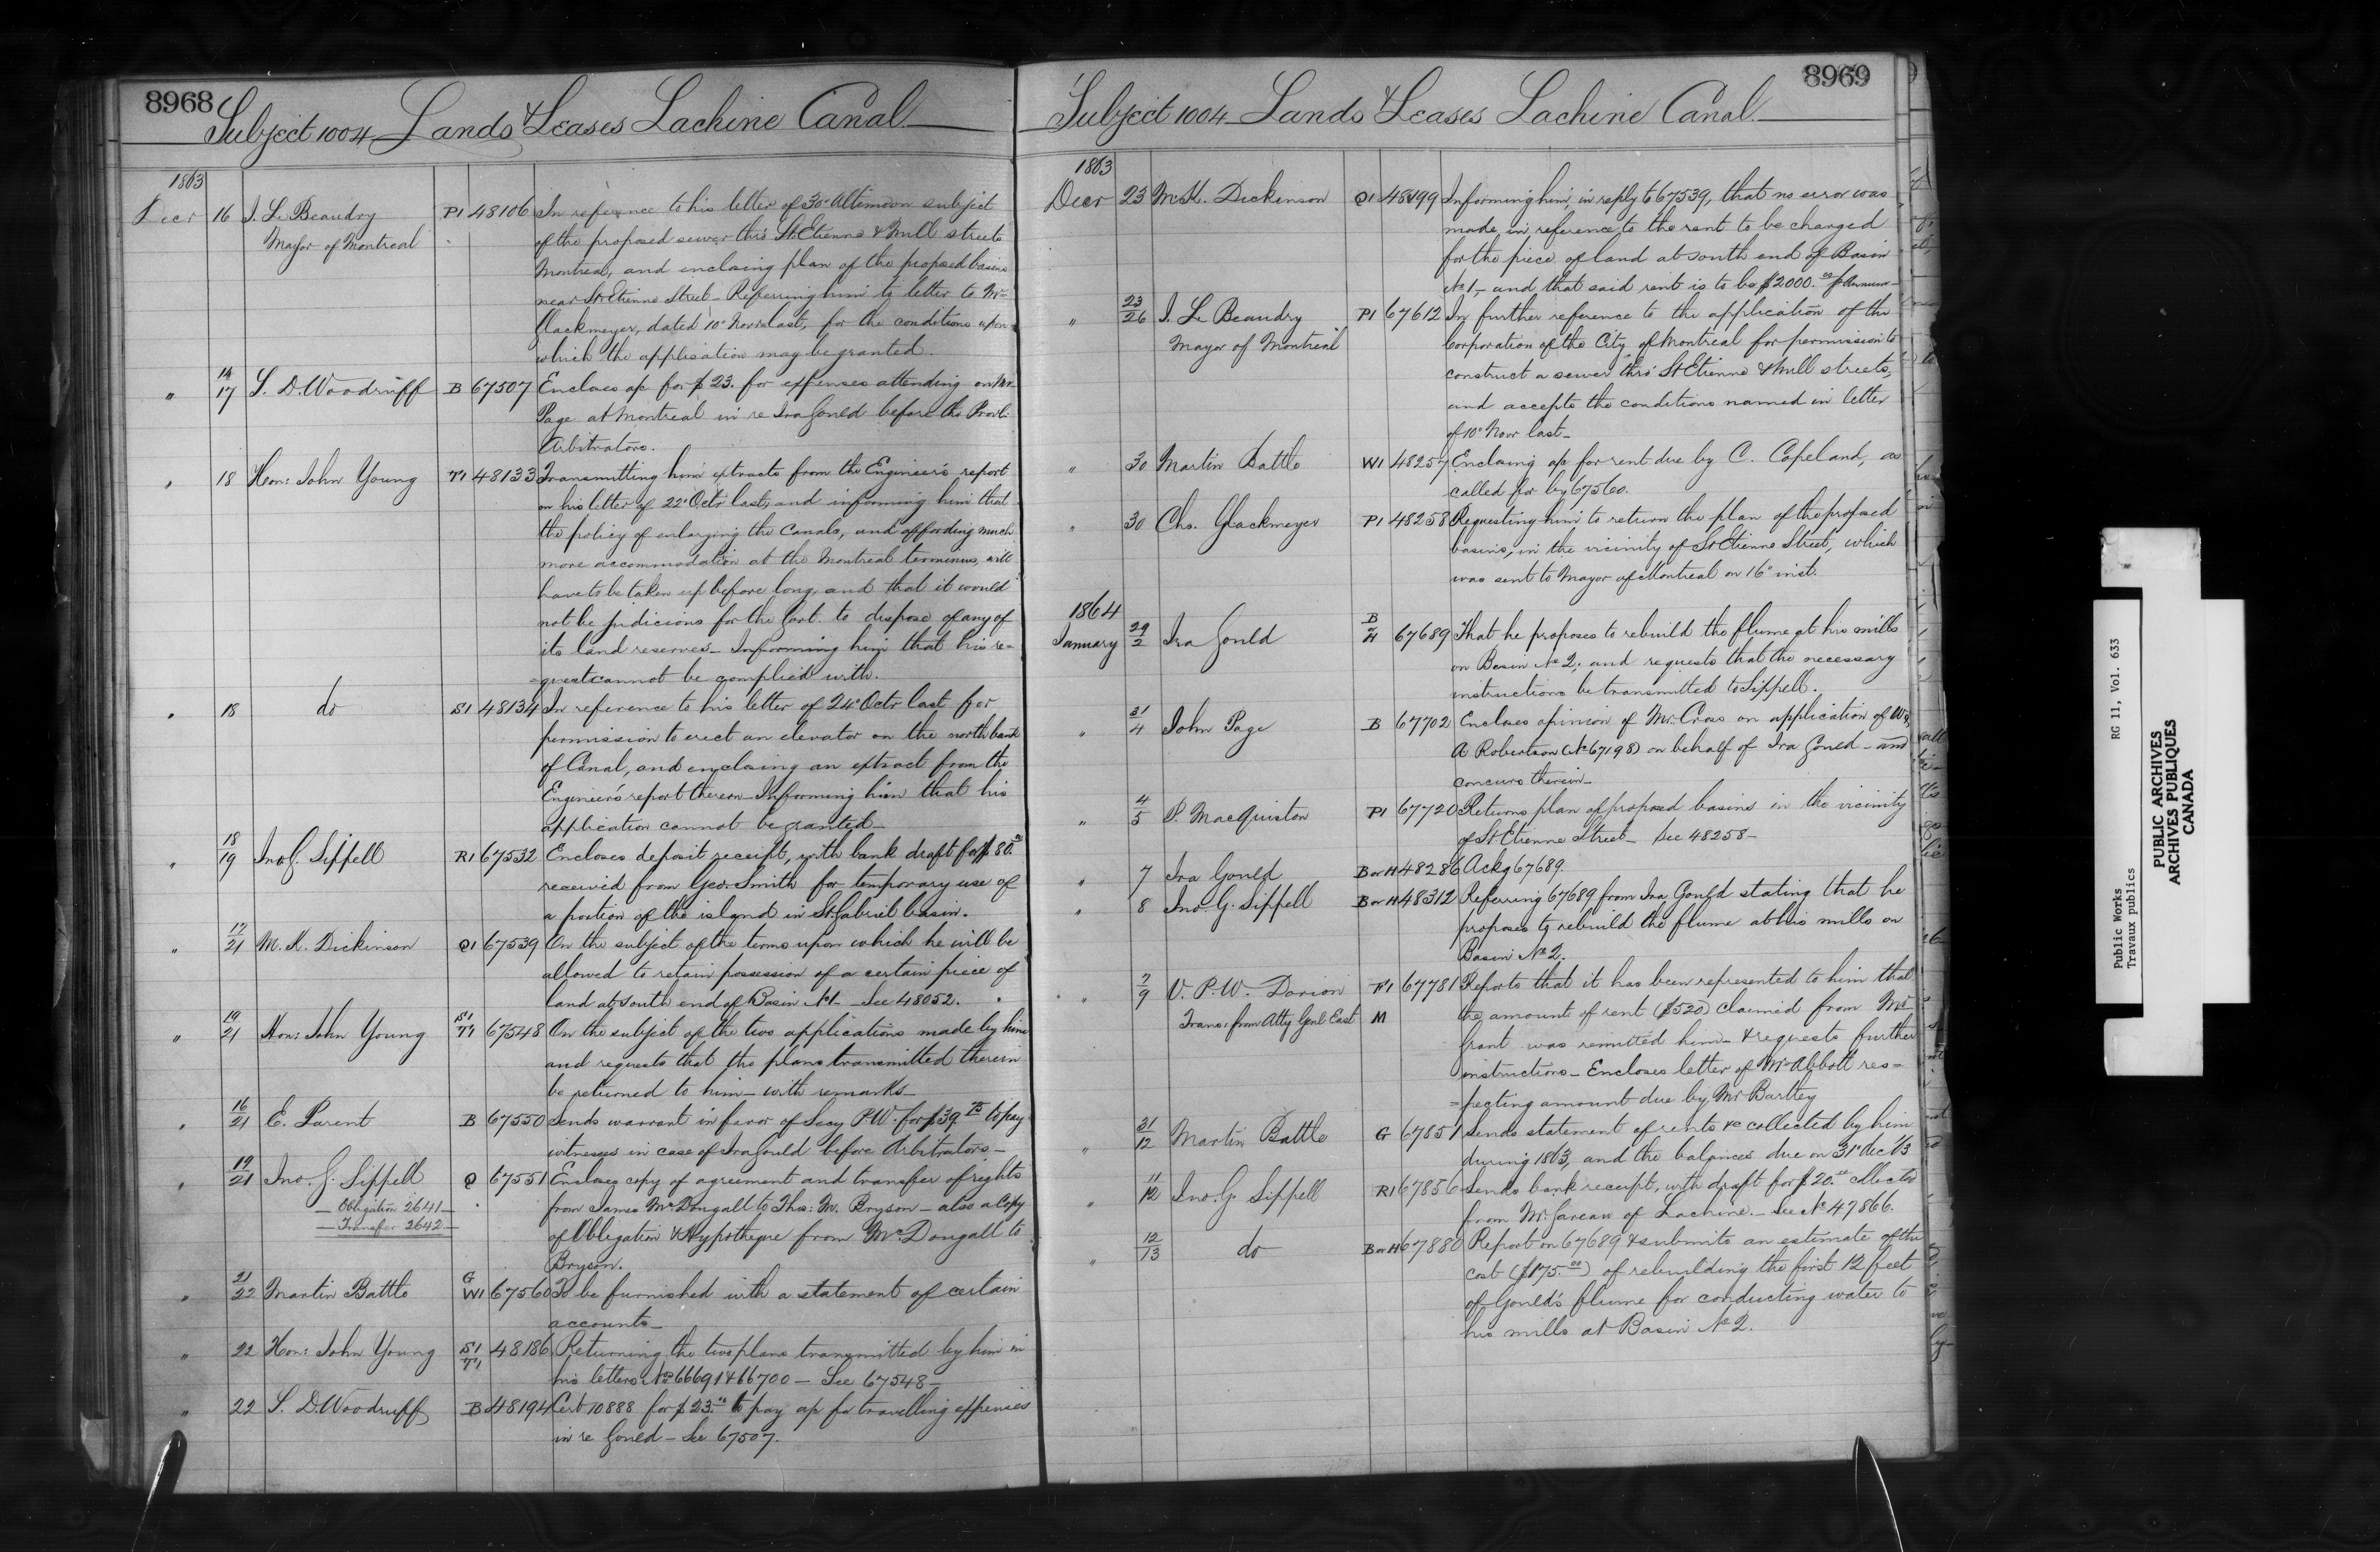 8968
Subject 1004 Lands & Leases Lachine Canal
1863
Decr 16 J. L. Beaudry P1 48106 In reference to his letter of 30' Ultimo on subject
Mayor of Montreal of the proposed sewer thro' St. Etienne & Mill streets
Montreal, and enclosing plan of the proposed basins
near St. Etienne Street - Referring him to letter to Mr
Glackmeyer, dated 10' Novr last, for the conditions upon
which the application may be granted.
" 14/17 S. D. Woodruff B 67507 Encloses a/c for $23. for expenses attending on Mr
Page at Montreal in re Ira Gould before the Provl.
Arbitrators.
" 18 Hon: John Young T1 48133 Transmitting him extracts from the Engineer's report
on his letter of 22' Octr last, and informing him that
the policy of enlarging the Canals, and affording much
more accommodation at the Montreal terminus, will
have to be taken up before long, and that it would
not be judicious for the Govt. to dispose of any of
its land reserves - Informing him that his re-
-quest cannot be complied with.
" 18 do S1 48134 In reference to his letter of 24' Octr last for
permission to erect an elevator on the north bank
of Canal, and enclosing an extract from the
Engineer's report thereon - Informing him that his
application cannot be granted -
" 18/19 Jno G. Sippell R1 67532 Encloses deposit receipt, with bank draft for $80.00
received from Geo. Smith for temporary use of
a portion of the island in St. Gabriel basin.
" 17/21 M. K. Dickinson Q1 67539 On the subject of the terms upon which he will be
allowed to retain possession of a certain piece of
land at south end of Basin No 1 - See 48052.
" 19/21 Hon: John Young S1 T1 67548 On the subject of the two applications made by him
and requests that the plans transmitted therein
be returned to him - with remarks -
" 16/21 E. Parent B 67550 Sends warrant in favor of Secy P.W. for $39.75 to pay
witnesses in case of Ira Gould before Arbitrators -
" 19/21 Jno. G. Sippell Q 67551 Encloses copy of agreement and transfer of rights
- Obligation 2641 - from James McDougall to Thos: M. Bryson - also a Copy
- Transfer 2642 - of Obligation & Hypotheque from McDougall to
Bryson.
" 21/22 Martin Battle G W1 67560 To be furnished with a statement of certain
accounts -
" 22 Hon: John Young S1 T1 48186 Returning the two plans transmitted by him in
his letters Nos 66691 & 66700 - See 67548 -
" 22 S. D. Woodruff B 48194 Cert 10888 for $23.00 to pay a/c for travelling expenses
in re Gould - See 67507.
8969
Subject 1004 Lands & Leases Lachine Canal
1863
Decr 23 M. K. Dickinson Q1 48199 Informing him, in reply to 67539, that no error was
made in reference to the rent to be charged
for the piece of land at south end of Basin
No 1, - and that said rent is to be $2000.00 p Annum -
" 23/26 J. L. Beaudry P1 67612 In further reference to the application of the
Mayor of Montreal Corporation of the City of Montreal for permission to
construct a sewer thro' St Etienne & Mill streets,
and accepts the conditions named in letter
of 10' Novr last -
" 30 Martin Battle W1 48257 Enclosing a/c for rent due by C. Copeland, as
called for by 67560.
" 30 Chs. Glackmeyer P1 48258 Requesting him to return the plan of the proposed
basins, in the vicinity of St Etienne Street, which
was sent to Mayor of Montreal on 16' inst.
1864
January 29/2 Ira Gould B or H 67689 That he proposes to rebuild the flume at his mills
on Basin No 2; and requests that the necessary
instructions be transmitted to Sippell.
" 31/4 John Page B 67702 Encloses opinion of Mr. Cross on application of Wr.
A Robertson (No 67198) on behalf of Ira Gould - and
concurs therein -
" 4/5 P. MacQuiston P1 67720 Returns plan of proposed basins in the vicinity
of St Etienne Street - See 48258 -
" 7 Ira Gould B or H 48286 Ackg 67689.
" 8 Jno. G. Sippell B or H 48312 Referring 67689 from Ira Gould stating that he
proposes to rebuild the flume at his mills on
Basin No 2.
" 7/9 V. P. W. Dorion F1 67781 Reports that it has been represented to him that
Trans: from Atty Genl East M the amount of rent ($520) claimed from Mr
Grant was remitted him - & requests further
instructions - Encloses letter of Mr Abbott res-
=pecting amount due by Mr Bartley
" 31/12 Martin Battle G 67851 Sends statement of rents &c collected by him
during 1863, and the balances due on 31st Dec /63
" 11/12 Jno. G. Sippell R1 67856 Sends bank receipt, with draft for $20.00 collected
from Mr. Gareau of Lachine. - See No 47866.
" 12/13 do B or H 67880 Report on 67689 & submits an estimate of the
cost ($175.00) of rebuilding the first 12 feet
of Gould's flume for conducting water to
his mills at Basin No 2.
Public Works RG 11, Vol. 633
Travaux publics
PUBLIC ARCHIVES
ARCHIVES PUBLIQUES
CANADA